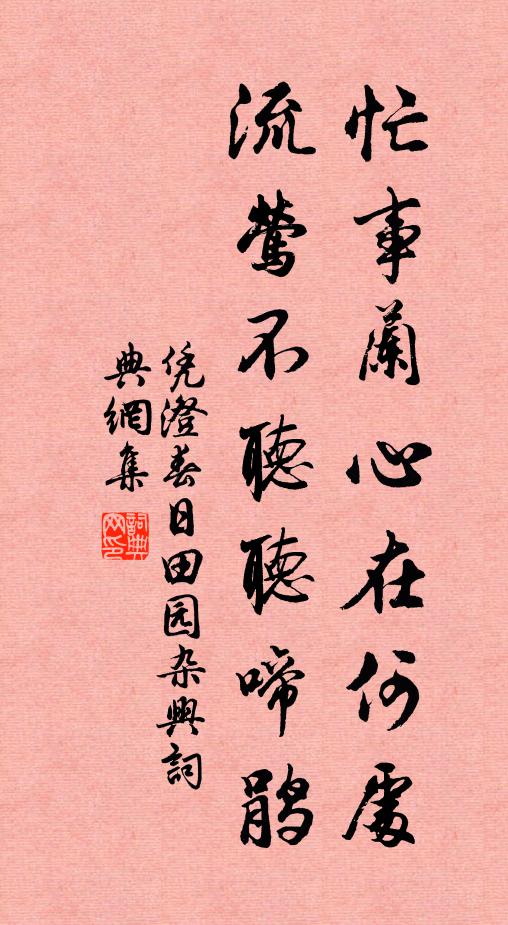 忙事蘭心在何處
流莺不聽聽啼鹃
凭澄春日田园杂興詞
典網集
詞典网印